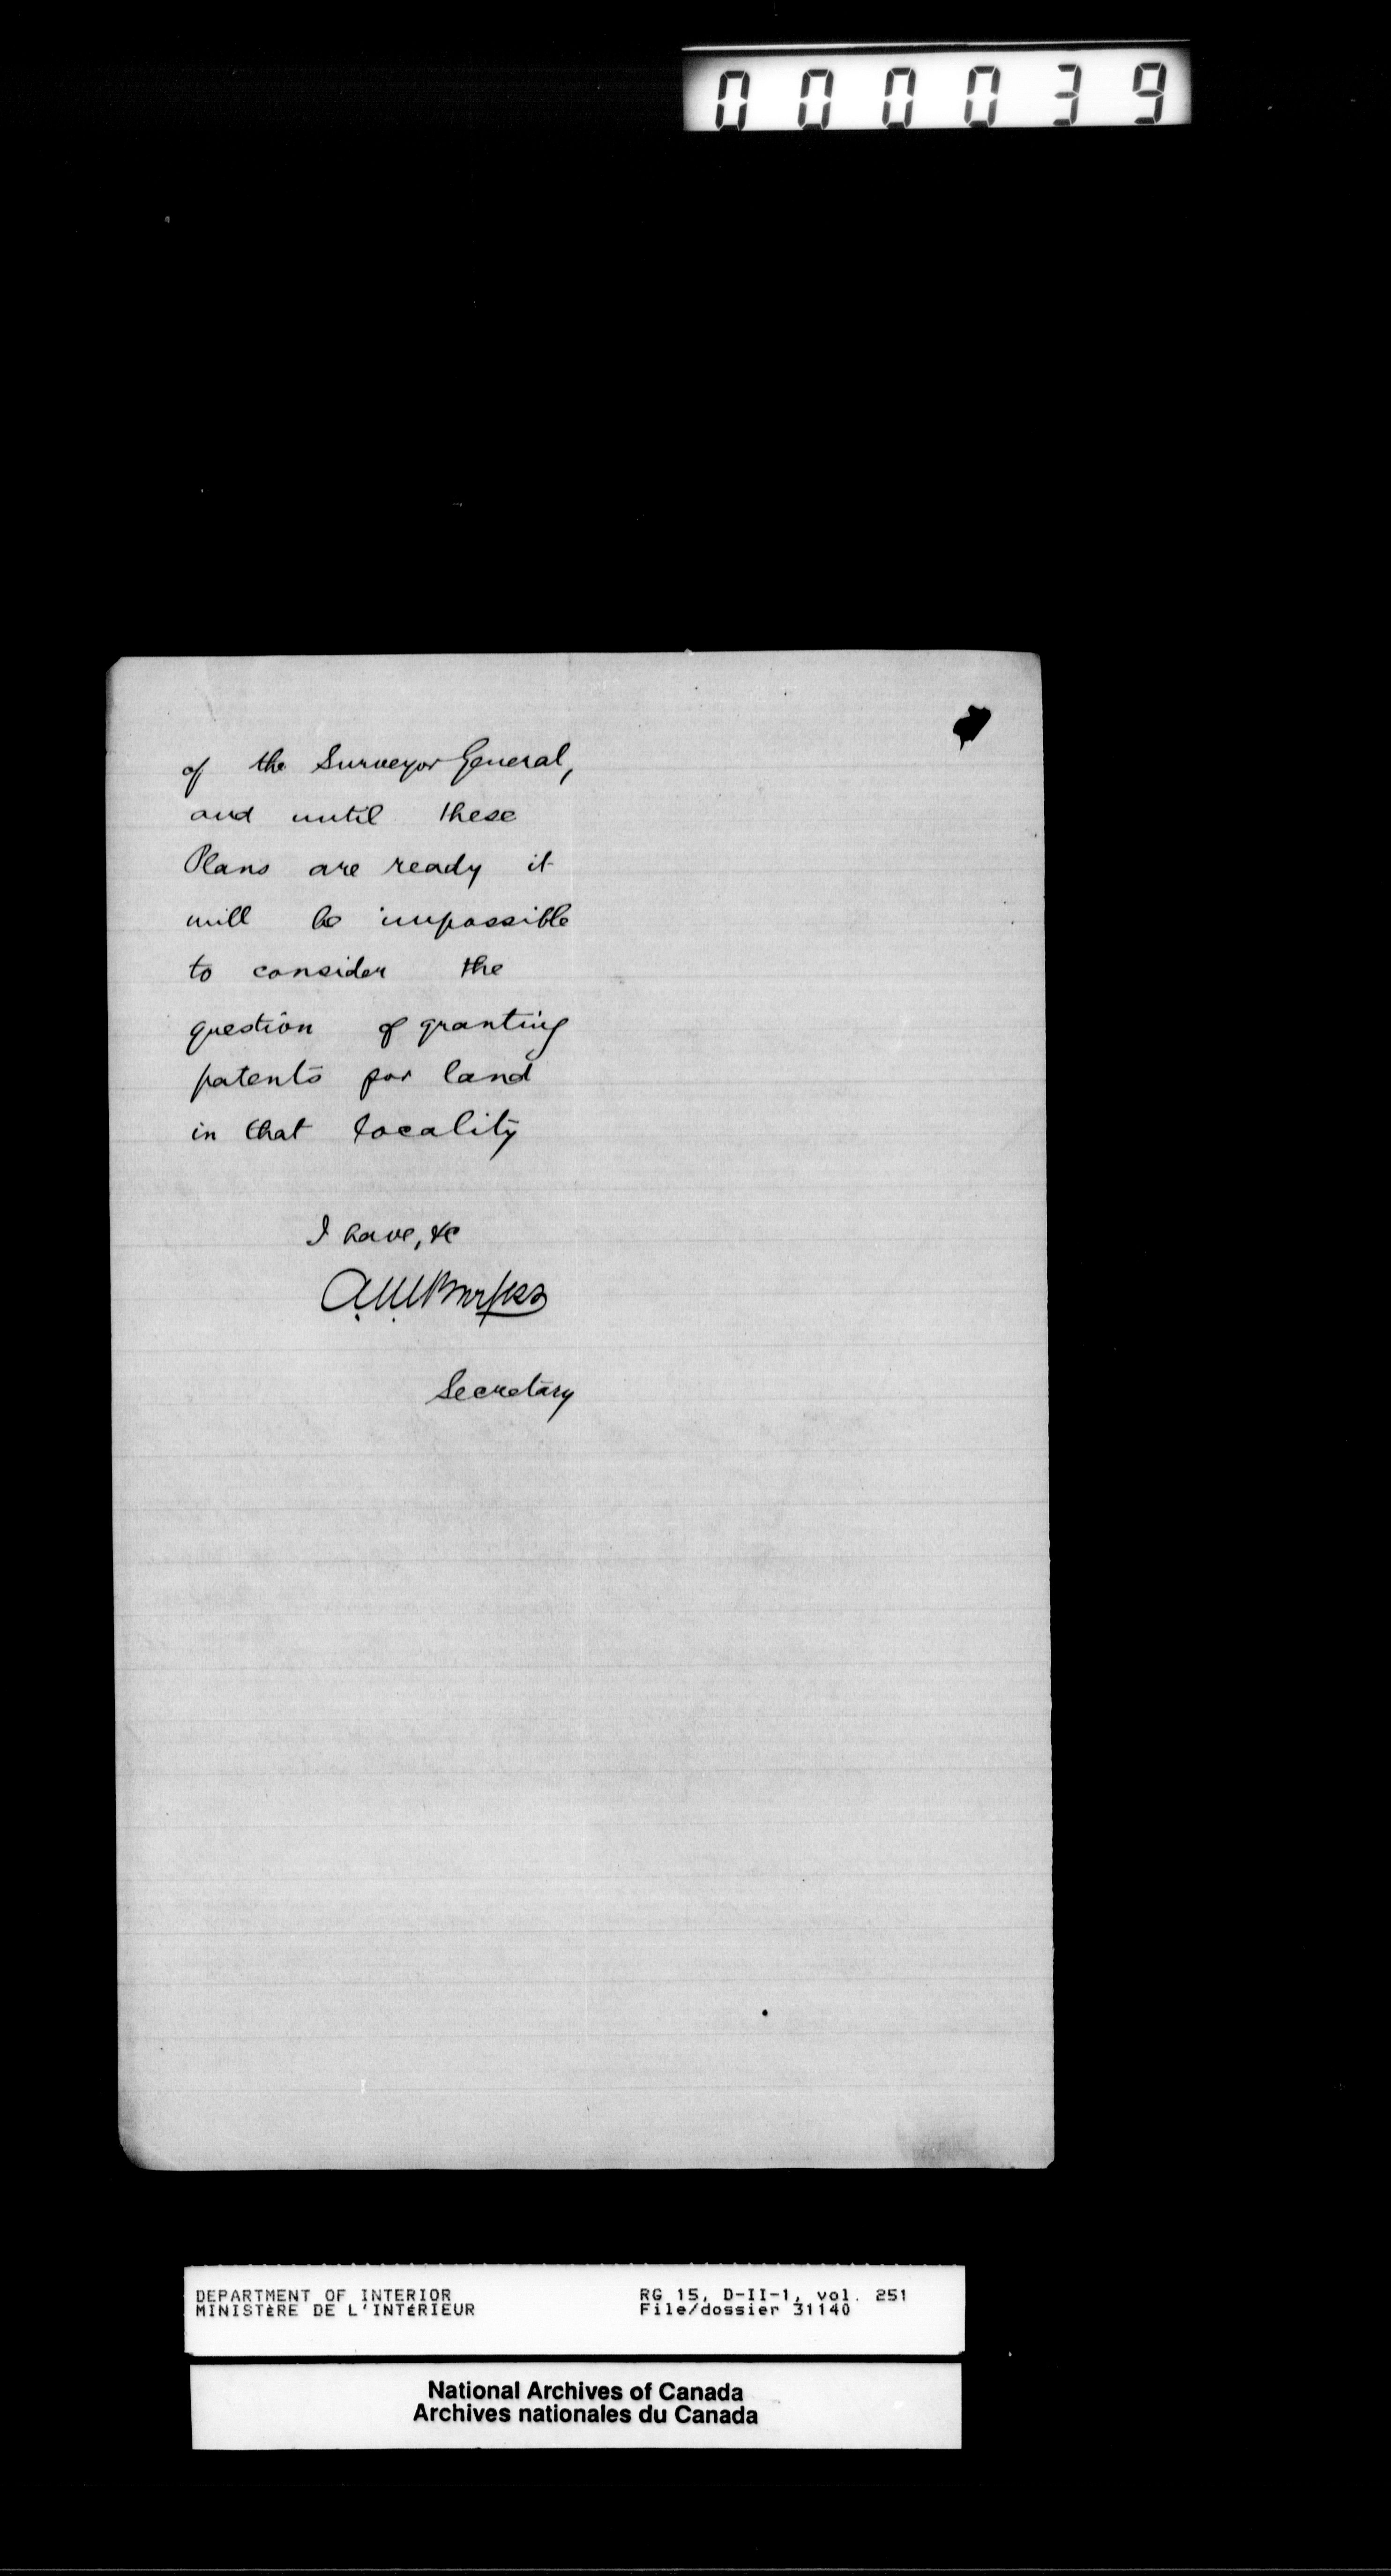 000039
of the Surveyor General,
and until these
Plans are ready it
will be impossible
to consider the
question of granting
patents for land
in that locality
I have, &c
A.M.Burgess
Secretary
DEPARTMENT OF INTERIOR RG 15, D-II-1, vol. 251
MINISTÈRE DE L'INTÉRIEUR File/dossier 31140
National Archives of Canada
Archives nationales du Canada